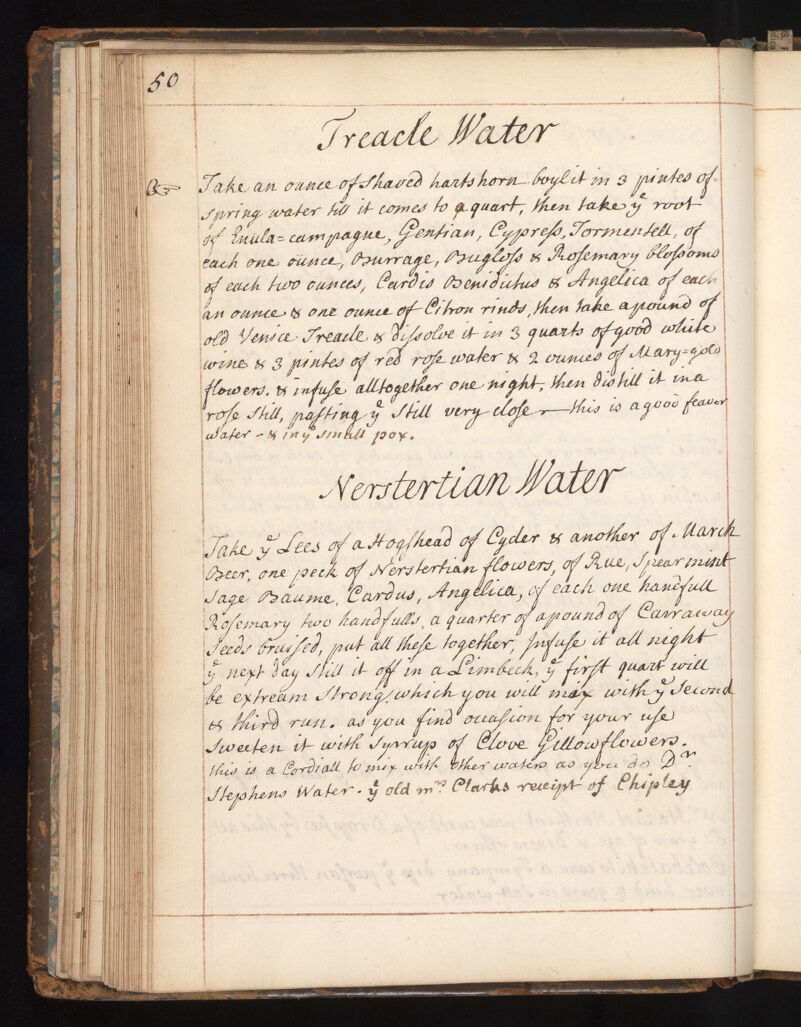 50
Treacle Water
Take an ounce of Shaved hartshorn boyl it in 3 pintes of
spring water till it comes to a quart, then take yᵉ root
of Enula=campague, Gentian, Cypress, Tormentell, of
each one ounce, Burrage, Bugloss & Rosemary blossoms
of each two ounces, Cardis Benidictus & Angelica of each
an ounce & one ounce of Citron rinds, then take a pound of
old Venice Treacle & dissolve it in 3 quarts of good white
wine & 3 pintes of red rose water & 2 ounces of Mary=gold
flowers. & infuse alltogether one night, then distill it in a
rose Still, pasting yᵉ Still very close — this is a good feaver
water - & in yᵉ small pox.
Nerstertian Water
Take yᵉ Lees of a Hogshead of Cyder & another of March
Beer, one peck of Nerstertian flowers, of Rue, Spearmint
Sage Baume, Cardus, Angelica, of each one handfull
Rosemary two handfulls, a quarter of a pound of Carraway
Seeds bruised, put all these together, Infuse it all night
yᵉ next day Still it off in a Limbeck, yᵉ first quart will
be extream Strong, which you will mix with yᵉ Second
& third run. as you find occasion for your use
Sweeten it with Syrrup of Clove Gillowflowers.
this is a Cordiall to mix with other waters as you do Dʳ.
Stephens Water. yᵉ old mʳˢ Clarks receipt of Chipley